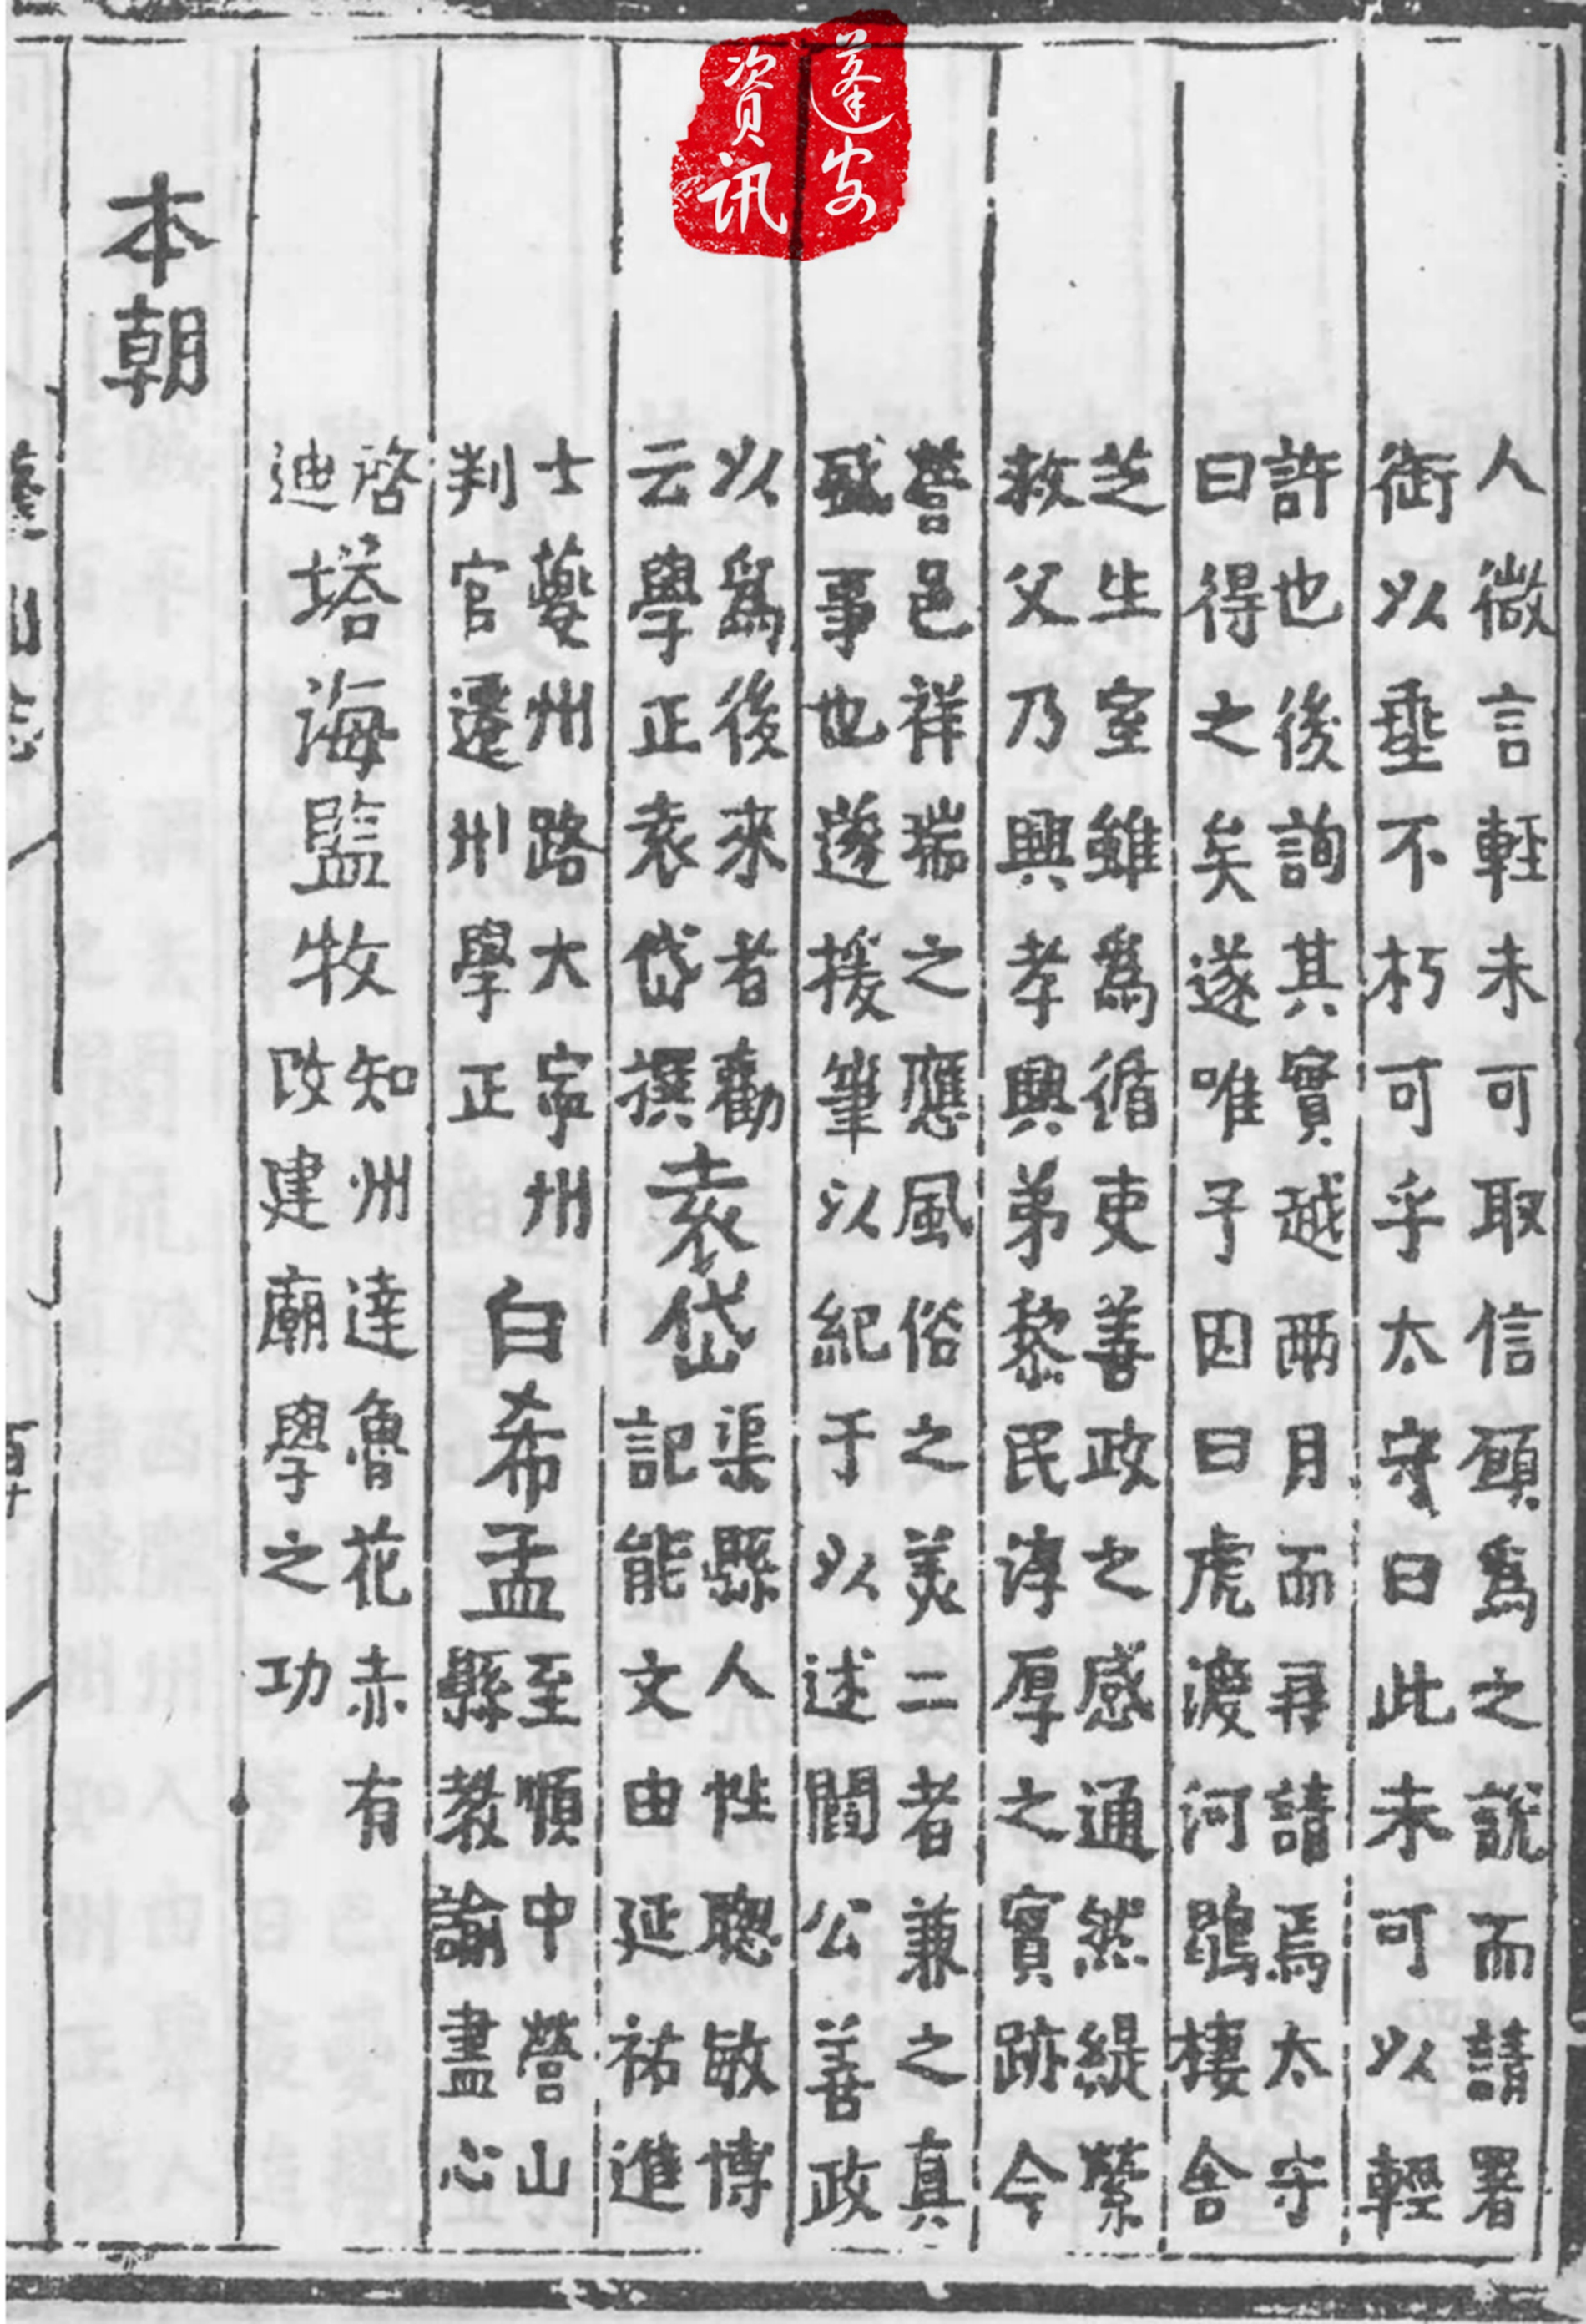 蓬安
资讯
人微言輕未可取信願爲之說而請署
銜以垂不朽可乎太守曰此未可以輕
許也後詢其實越兩月而再請焉太守
曰得之矣遂唯予因曰虎渡河鵾棲舍
芝生室雖爲循吏善政之感通然緹縈
救父乃興孝興弟黎民淳厚之實跡今
營邑祥瑞之應風俗之美二者兼之真
盛事也遂援筆以紀于以述閻公善政
以爲後來者勸
云學正袁岱撰
袁岱
渠縣人性聰敏博
記能文由延祐進
士夔州路大寧州
判官遷州學正
白希孟
至順中營山
縣教諭盡心
啓
迪
塔海監牧
知州達魯花赤有
改建廟學之功
本朝